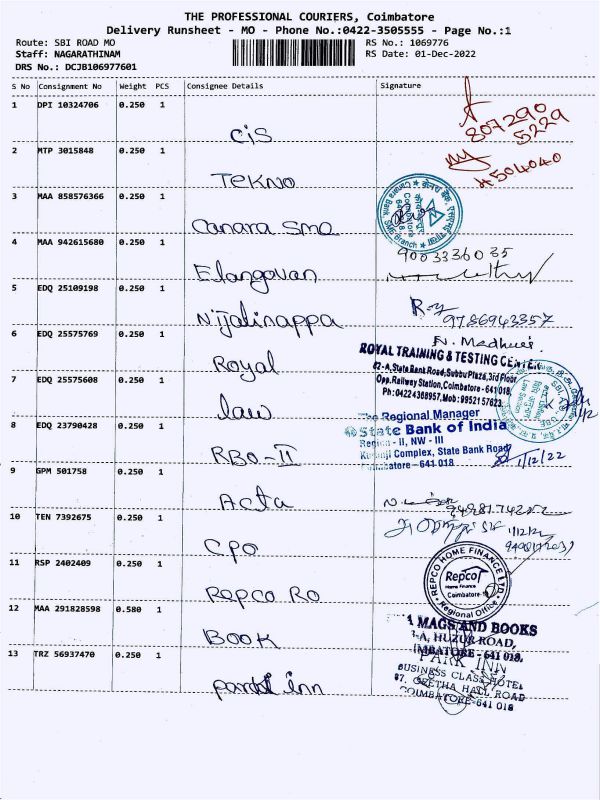 THE PROFESSIONAL COURIERS, Coimbatore
Delivery Runsheet - MO - Phone No.:0422-3505555 - Page No.:1
Route: SBI ROAD MO RS No.: 1069776
Staff: NAGARATHINAM RS Date: 01-Dec-2022
DRS No.: DCJB106977601
S No Consignment No Weight PCS Consignee Details Signature
1 DPI 10324706 0.250 1
CIS
807290
5229
2 MTP 3015848 0.250 1
TEKNO
4504040
3 MAA 858576366 0.250 1
Canara SMO
Canara Bank, SME Branch
4 MAA 942615680 0.250 1
Elangovan
9003336035
5 EDQ 25109198 0.250 1
Nijalinappa
9786943357
6 EDQ 25575769 0.250 1
Royal
N. Madhu
ROYAL TRAINING & TESTING CENTER
62-A, State Bank Road, Subbu Plaza, 3rd Floor
Opp. Railway Station, Coimbatore - 641 018
7 EDQ 25575608 0.250 1
law
8 EDQ 23790428 0.250 1
RBO-II
The Regional Manager
State Bank of India
Region - II, NW - III
Complex, State Bank Road
Coimbatore - 641 018
1/12/22
9 GPM 501758 0.250 1
Acta
10 TEN 7392675 0.250 1
CPO
11 RSP 2402409 0.250 1
Repco Ro
REPCO HOME FINANCE LTD.
Repco
Home Finance
Coimbatore
Regional Office
12 MAA 291828598 0.580 1
BOOK
MAGS AND BOOKS
HUZUR ROAD,
COIMBATORE - 641 018.
13 TRZ 56937470 0.250 1
park inn
PARK INN
BUSINESS CLASS HOTEL
67, GEETHA HALL ROAD
COIMBATORE-641 018